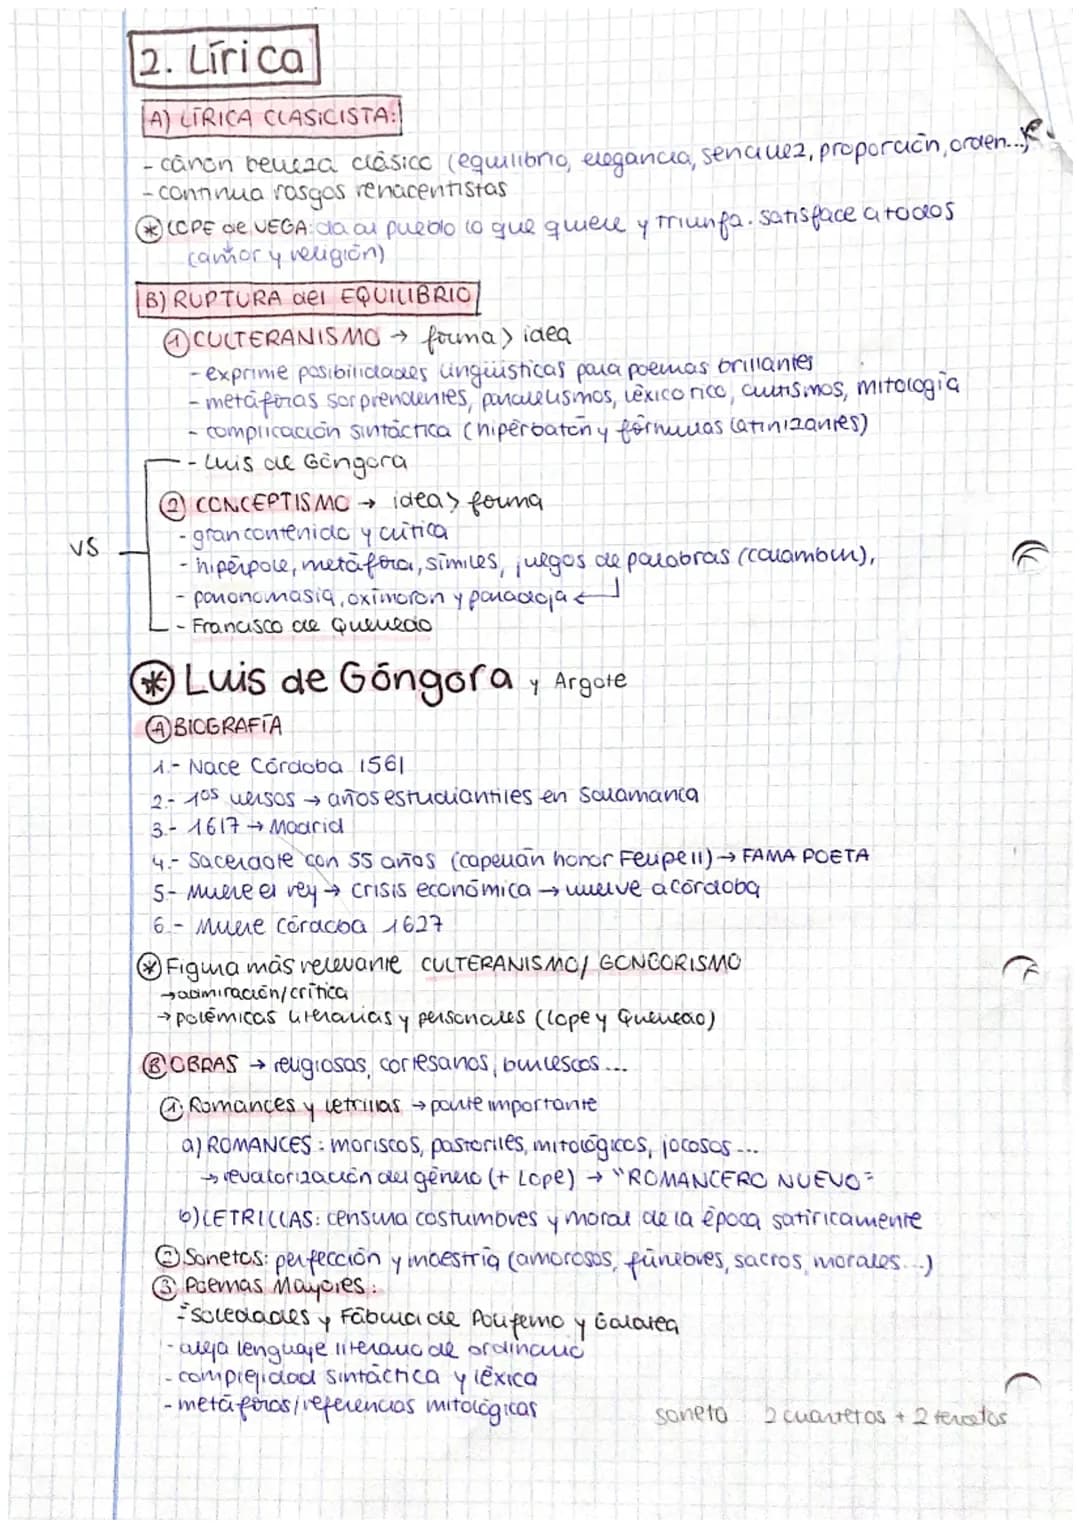 2. Lírica
A) LÍRICA CLASICISTA:
- canon belleza clásico (equilibrio, elegancia, sencillez, proporción, orden...)
- continua rasgos renacentistas
* LOPE de VEGA: da al pueblo lo que quiere y triunfa. satisface a todos
(amor y religión)
B) RUPTURA del EQUILIBRIO
① CULTERANISMO → forma > idea
- exprime posibilidades lingüísticas para poemas brillantes
- metáforas sorprendentes, paralelismos, léxico rico, cultismos, mitología
- complicación sintáctica (hipérbaton y fórmulas latinizantes)
- Luis de Góngora
② CONCEPTISMO → idea > forma
- gran contenido y crítica
vs
- hipérpole, metáfora, símiles, juegos de palabras (calambur),
- paronomasia, oxímoron y paradoja
- Francisco de Quevedo
* Luis de Góngora y Argote
Ⓐ BIOGRAFÍA
1.- Nace Córdoba 1561
2.- 1os versos → años estudiantiles en Salamanca
3.- 1617 → Madrid
4.- Sacerdote con 55 años (capellán honor Felipe II) → FAMA POETA
5.- Muere el rey → crisis económica → vuelve a córdoba
6.- Muere Córdoba 1627
* Figura más relevante CULTERANISMO/ GONGORISMO
→ admiración/crítica
→ polémicas literarias y personales (Lope y Quevedo)
Ⓑ OBRAS → religiosas, cortesanos, burlescos...
① Romances y letrillas → parte importante
a) ROMANCES: moriscos, pastoriles, mitológicos, jocosos...
→ revalorización del género (+ Lope) → "ROMANCERO NUEVO"
b) LETRILLAS: censura costumbres y moral de la época satíricamente
② Sonetos: perfección y maestría (amorosos, fúnebres, sacros, morales...)
③ Poemas Mayores:
- Soledades y Fábula de Polifemo y Galatea
- aleja lenguaje literario de ordinario
- complejidad sintáctica y léxica
- metáforas/referencias mitológicas
soneto 2 cuartetos + 2 tercetos